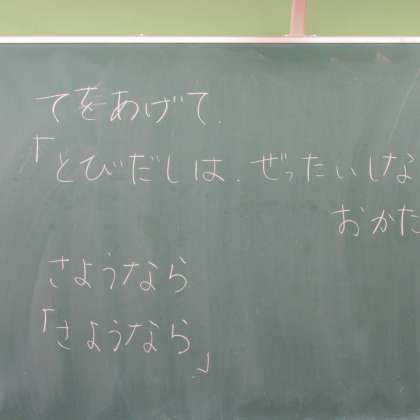 てをあげて.
「とびだしは.ぜったいしな
おかた
さようなら
「さようなら」